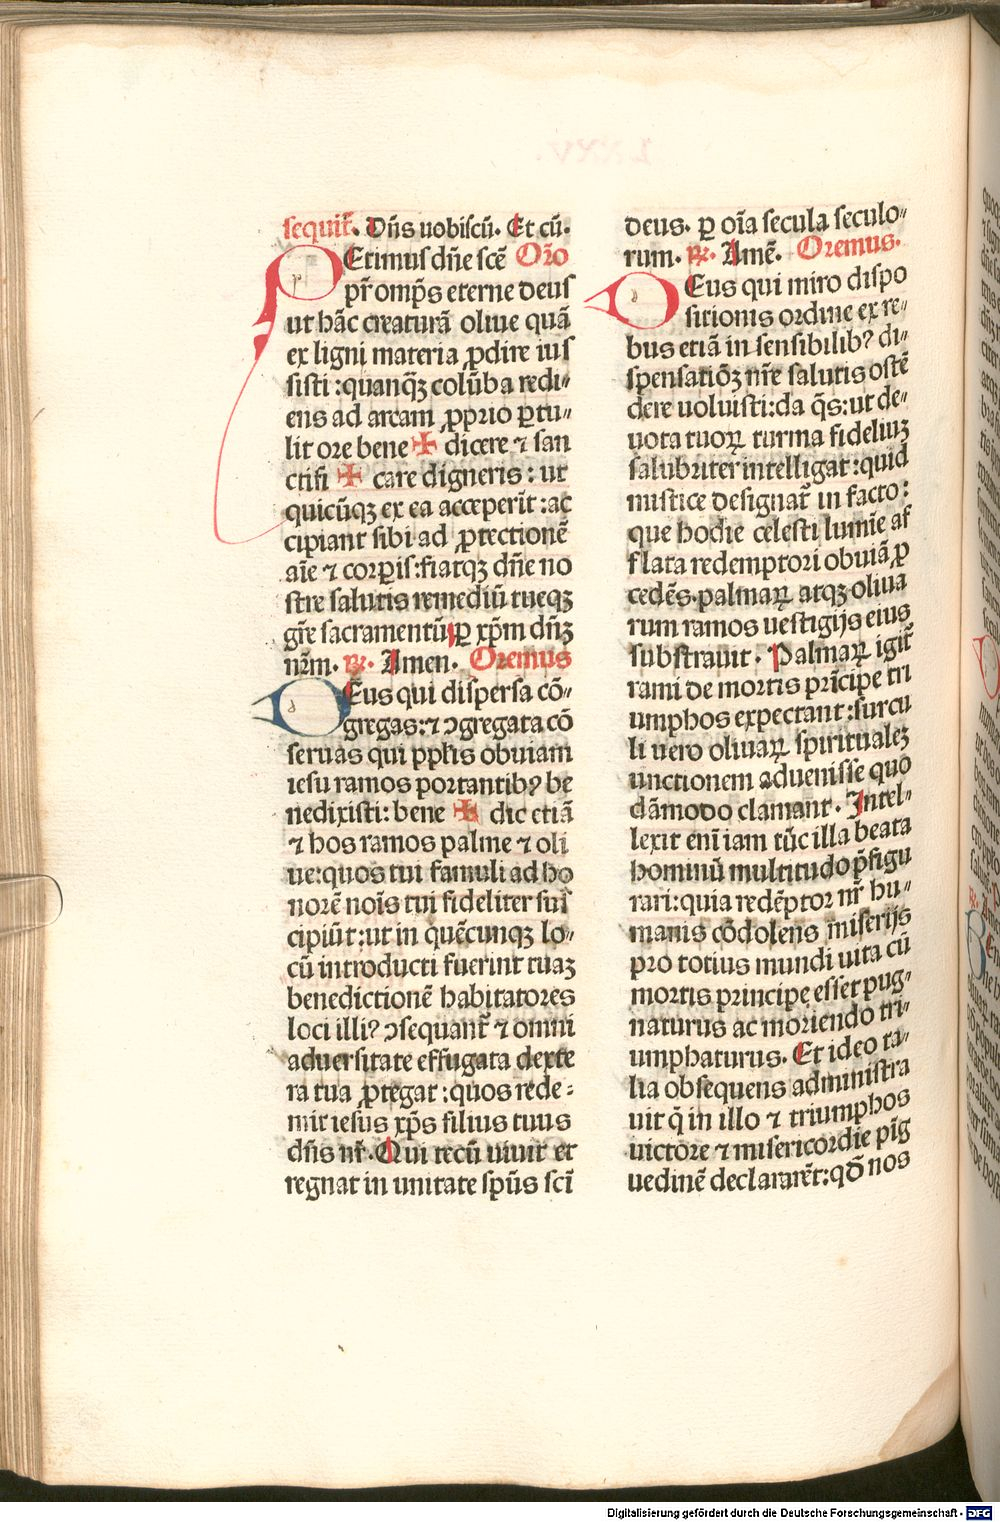 LXXV.
sequit᷑. Dn̄s uobiscū. Et cū.
PEtimus dn̄e scē Orō
pr̄ omp̄s eterne deus
ut hāc creaturā oliue quā
ex ligni materia ꝓdire ius
sisti : quanqꝫ colūba redi⸗
ens ad arcam ꝓprio ꝑtu⸗
lit ore bene ✠ dicere ⁊ san
ctifi ✠ care digneris : ut
quicūqꝫ ex ea acceperīt : ac
cipiant sibi ad ꝓtectionē
aīe ⁊ corꝑis : fiatqꝫ dn̄e no
stre salutis remediū tueqꝫ
gr̄e sacramentū ꝑ xp̄m dn̄ꝫ
nr̄m. ℟. Amen. Oremus
DEus qui dispersa cō⸗
gregas : ⁊ ↄgregata cō
seruas qui pplīs obuiam
iesu ramos portantibꝰ be
nedixisti : bene ✠ dic etiā
⁊ hos ramos palme ⁊ oli
ue : quos tui famuli ad ho
norē noīs tui fideliter sus
cipiūt : ut in quēcunqꝫ lo⸗
cū introducti fuerint tuaꝫ
benedictionē habitatores
loci illiꝰ ↄsequant᷑ ⁊ omni
aduersitate effugata dexte
ra tua ꝓtegat : quos rede⸗
mit iesus xp̄s filius tuus
dn̄s nr̄. Qui tecū uiuit et
regnat in unitate sp̄ūs scī
deus. ꝑ oīa secula seculo⸗
rum. ℟. Amē. Oremus.
DEus qui miro dispo
sitionis ordine ex re⸗
bus etiā in sensibilibꝰ di⸗
spensatiōꝫ nr̄e salutis ostē
dere uoluisti : da q̄s : ut de⸗
uota tuoꝝ turma fideliuꝫ
salubriter intelligat : quid
mistice designat᷑ in facto :
que hodie celesti lumīe af
flata redemptori obuiā ꝓ
cedēs. palmaꝝ atqꝫ oliua
rum ramos uestigijs eius
substrauit. Palmaꝝ igit᷑
rami de mortis prīcipe tri
umphos expectant : surcu
li uero oliuaꝝ spiritualeꝫ
unctionem aduenisse quo
dāmodo clamant. Intel⸗
lexit enī iam tūc illa beata
hominū multitudo p̄figu
rari : quia redēptor nr̄ hu⸗
manis cōdolens miserijs
pro totius mundi uita cū
mortis principe esset pug⸗
naturus ac moriendo tri⸗
umphaturus. Et ideo ta⸗
lia obsequens administra
uit q̄ in illo ⁊ triumphos
uictorie ⁊ misericordie pīg
uedinē declararēt : qd̄ nos
Digitalisierung gefördert durch die Deutsche Forschungsgemeinschaft - DFG